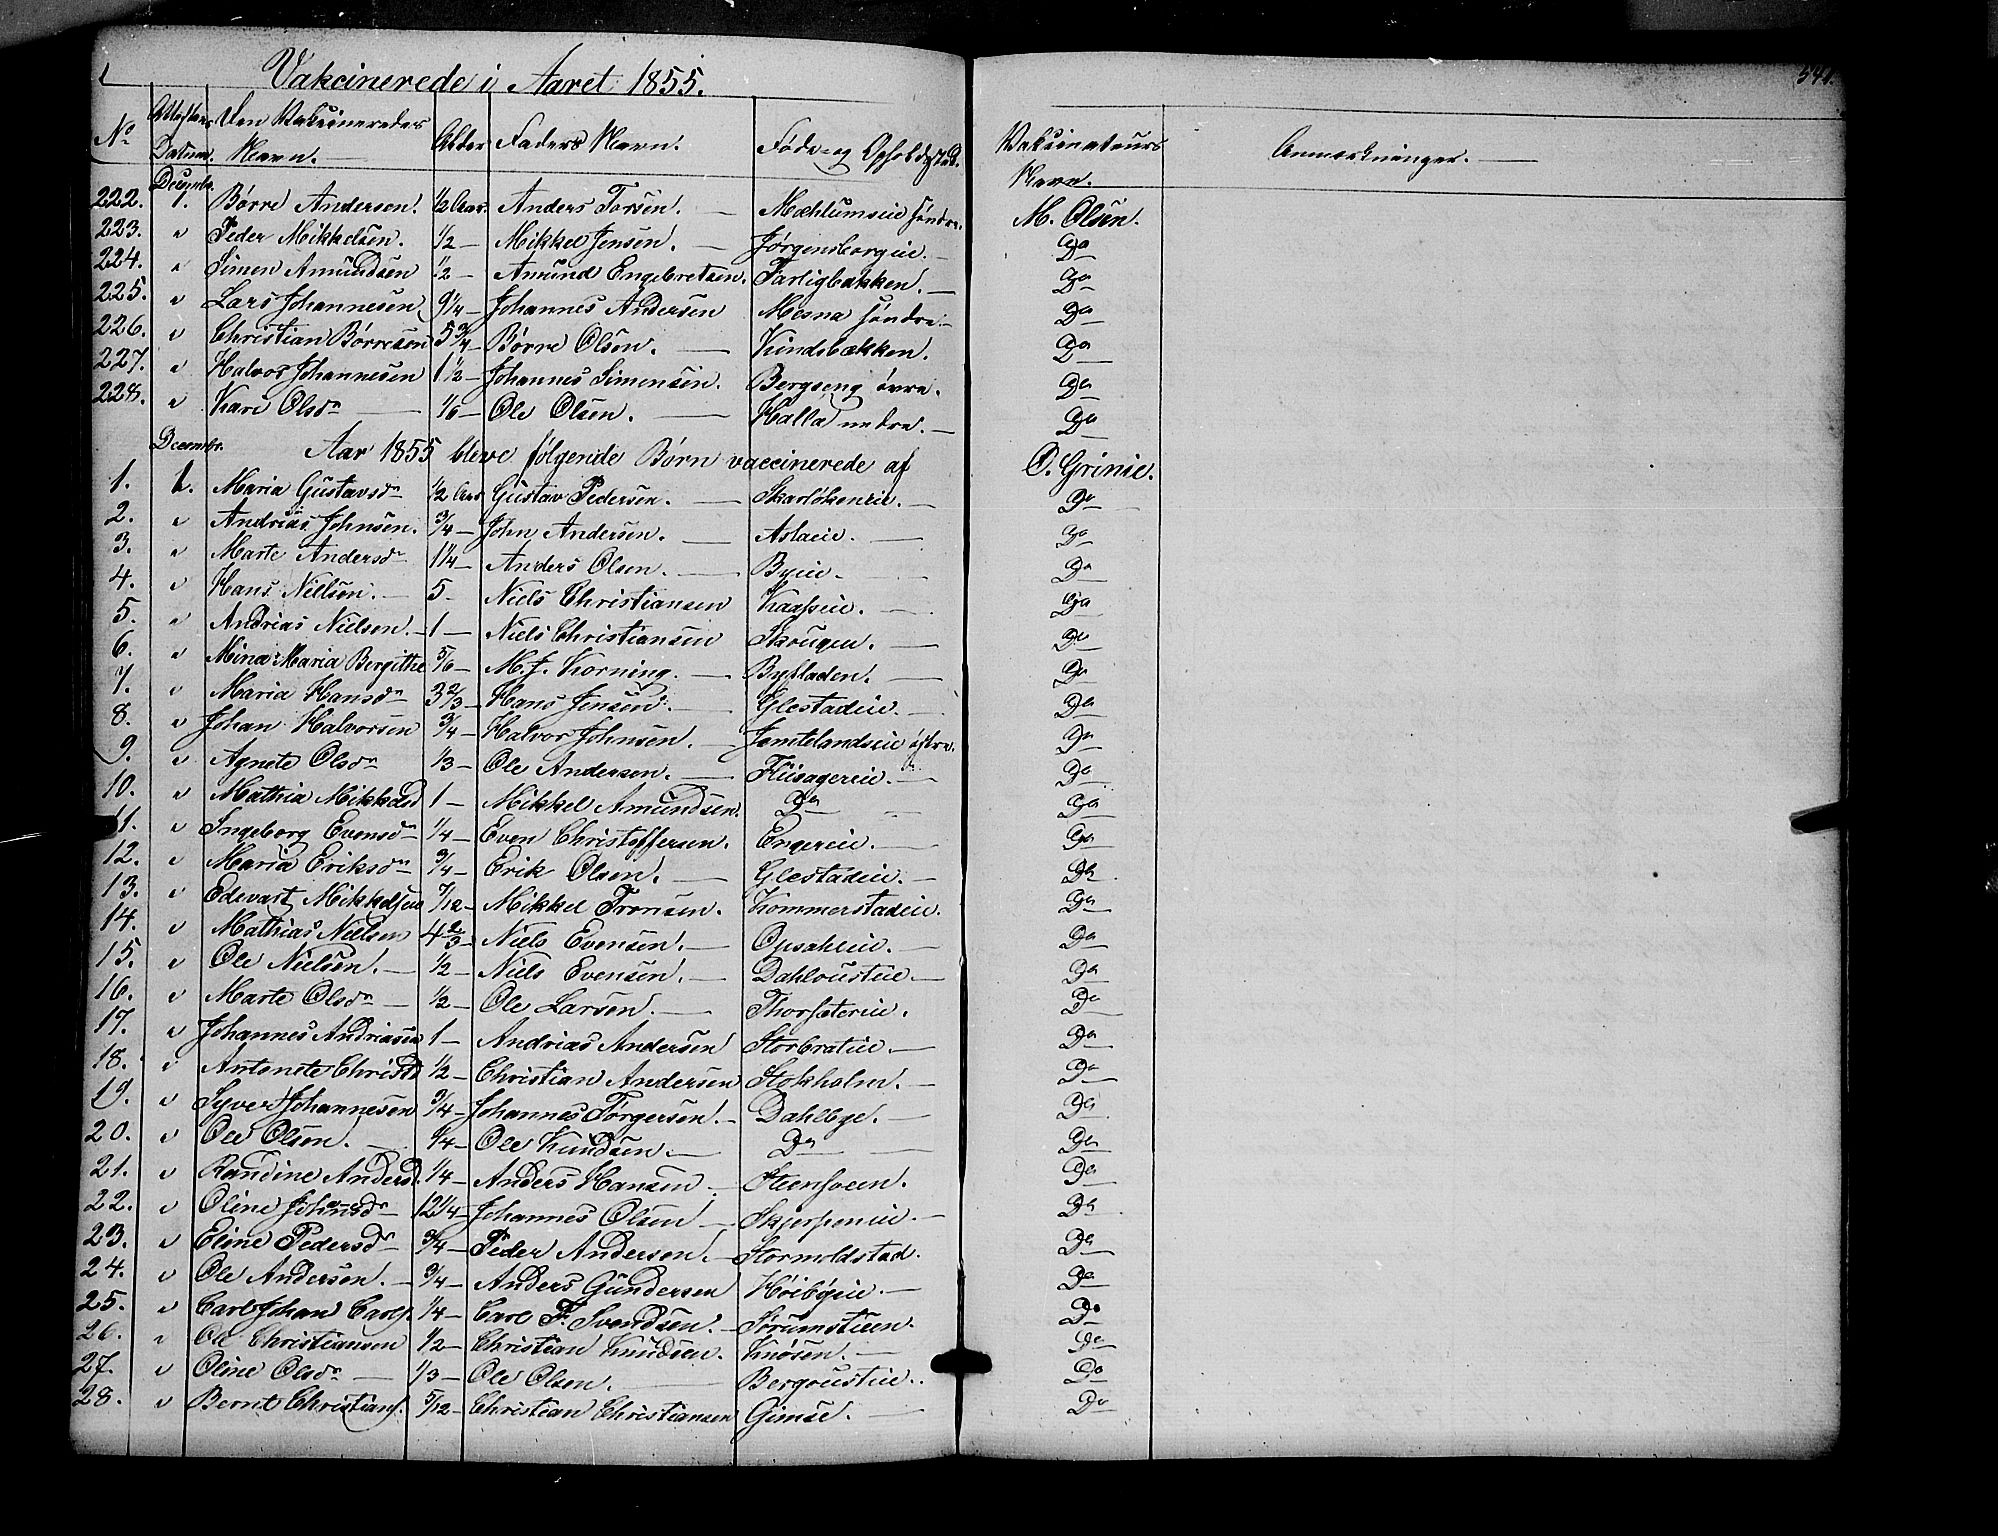 Vakcinerede i Aaret 1855.
541.
No Attestens Datum. Den Vakcineredes Navn. Alder Faders Navn. Føde- og Opholdssted. Vakcinateurs Navn. Anmærkninger.
Decembr.
222. 1. Børre Andersen. 1/2 Aar. Anders Torsen. Mæhlumseie søndre. M. Olsen.
223. " Peder Mikkelsen. 1/2 Mikkel Jensen. Jørgensborgeie. Do
224. " Simen Amundsen 1/2 Amund Engebretsen. Farligbakken. Do
225. " Lars Johannesen 9 1/4 Johannes Andersen Mesna søndre. Do
226. " Christian Børresen 5 3/4 Børre Olsen. Kundsbækken. Do
227. " Halvor Johannesen 1 1/2 Johannes Simensen. Bergseng øvre. Do
228. " Kari Olsdr 1/6 Ole Olsen. Halla nedre. Do
Decembr. Aar 1855 bleve følgende Børn vaccinerede af O. Grinie.
1. 1. Maria Gustavsdr 1/2 Aar Gustav Pedersen. Skarløkeneie. Do
2. " Andrias Johnsen. 3/4 John Andersen. Aslaeie. Do
3. " Marte Andersdr 1 1/4 Anders Olsen. Byeie. Do
4. " Hans Nielsen. 5 Niels Christiansen Do
5. " Andrias Nielsen. 1 Niels Christiansen Skougen. Do
6. " Mina Maria Bergitthe 5/6 M. J. Korning. Do
7. " Maria Hansdr 3 2/3 Hans Jensen. Glestadeie. Do
8. " Johan Halvorsen 3/4 Halvor Johnsen. Jemtelandseie østre. Do
9. " Agnete Olsdr 1/3 Ole Andersen. Flisagereie. Do
10. " Mathia Mikkelsd 1 Mikkel Amundsen. Do Do
11. " Ingeborg Evensdr 1/4 Even Christoffersen. Engereie. Do
12. " Maria Eriksdr 3/4 Erik Olsen. Glestadeie. Do
13. " Edevart Mikkelsen 7/12 Mikkel Tronsen. Kommerstadeie. Do
14. " Mathias Nielsen 4 2/3 Niels Evensen. Opsahleie. Do
15. " Ole Nielsen. 1/2 Niels Evensen. Dahlousteie Do
16. " Marte Olsdr 1/2 Ole Larsen. Thorsetereie. Do
17. " Johannes Andriasen 1 Andrias Andersen Storbrateie. Do
18. " Antonete Christd 1/2 Christian Andersen Stokholm. Do
19. " Syver Johannesen 3/4 Johannes Tørgersen. Dahlbye. Do
20. " Ole Olsen. Ole Kundsen. Do Do
21. " Randine Andersd. 1/4 Anders Hansen Steensveen. Do
22. " Oline Johansdr 12 1/4 Johannes Olsen Skjerpeneie. Do
23. " Eline Pedersdr 3/4 Peder Andersen. Stormoldstad. Do
24. " Ole Andersen. 3/4 Anders Gundersen Høibyeie Do
25. " Carl Johan Carls. 1/4 Carl F. Svendsen. Sørumstueen. Do
26. " Ole Christiansen 1/2 Christian Knudsen. Knøsen. Do
27. " Oline Olsdr 1/3 Ole Olsen. Bergousteie. Do
28. " Bernt Christians. 5/12 Christian Christiansen Gimse. Do